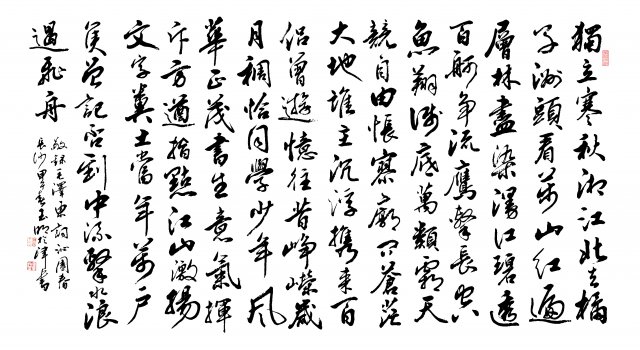 獨立寒秋湘江北去橘
子洲頭看萬山紅遍
層林盡染漫江碧透
百舸争流鷹擊長空
魚翔淺底萬類霜天
競自由悵寥廓問蒼茫
大地誰主沉浮攜來百
侣曾遊憶往昔崢嶸歲
月稠恰同學少年風
華正茂書生意氣揮
斥方遒指點江山激揚
文字糞土當年萬户
侯曾記否到中流擊水浪
遏飛舟
敬録毛澤東詞沁園春
長沙